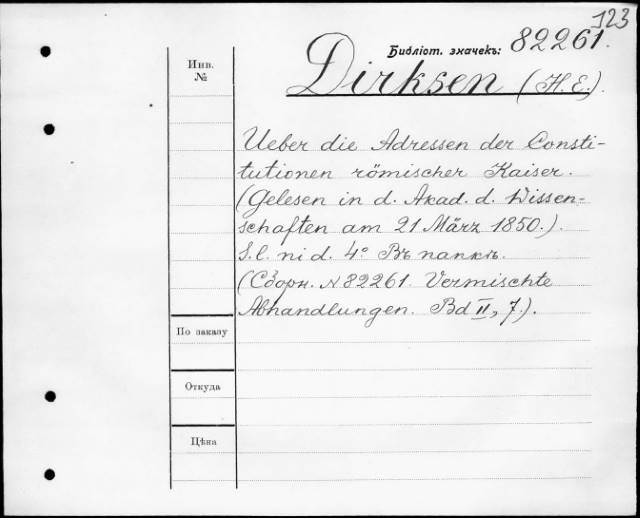 123
Библіот. значекъ: 82261.
Инв.
№
Dirksen (H. E.).
Ueber die Adressen der Consti-
tutionen römischer Kaiser.
(Gelesen in d. Akad. d. Wissen-
schaften am 21 März 1850.)
S. l. ni d. 4° Въ папкѣ.
(Сборн. N 82261. Vermischte
Abhandlungen. Bd II, 7.).
По заказу
Откуда
Цѣна